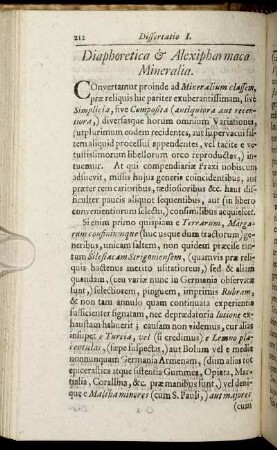 212 Dissertatio I.
Diaphoretica & Alexipharmaca
Mineralia.
Convertamur proinde ad Mineralium classem,
præ reliquis hic pariter exuberantissimam, sive
Simplicia, sive Composita (antiquiora aut recen-
tiora,) diversasque horum omnium Variationes,
(utplurimum eodem recidentes, aut supervacui sal-
tem aliquid processui appendentes, vel tacite e ve-
tustissimorum libellorum orco reproductas,) in-
tuemur. At qui compendiariæ Praxi nobiscum
adsuevit, missis hujus generis coincidentibus, aut
præter rem carioribus, tædiosioribus &c. haut dif-
ficulter paucis aliquot sequentibus, aut (in libero
convenientiorum selectu,) consimilibus acquiescet.
Si enim primo quispiam e Terrarum, Marga-
rumconfiniumque (huc usque dum tractorum) ge-
neribus, unicam saltem, non quidem præcise tan-
tum Silesiacam Strigoniensem, (quamvis præ reli-
quis hactenus merito usitatiorem,) sed & aliam
quandam, (ceu variæ nunc in Germania observatæ
sunt,) selectiorem, pinguem, imprimis Rubram,
& non tam annulo quam continuata experientia
sufficienter signatam, nec deprædatoria lotione ex-
haustam habuerit; causam non videmus, cur alias
insuper e Turcia, vel (si credimus) e Lemno pla-
centulas, (sæpe suspectas,) aut Bolum vel e media
nonnunquam Germania Armenam, (dum alias tot
epicerastica atque sistentia Gummea, Opiata, Mar-
tialia, Corallina, &c. præ manibus sunt,) vel deni-
que e Malthaminores (cum S. Pauli,) aut majores
(cum